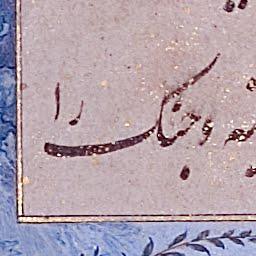 و جنگ را